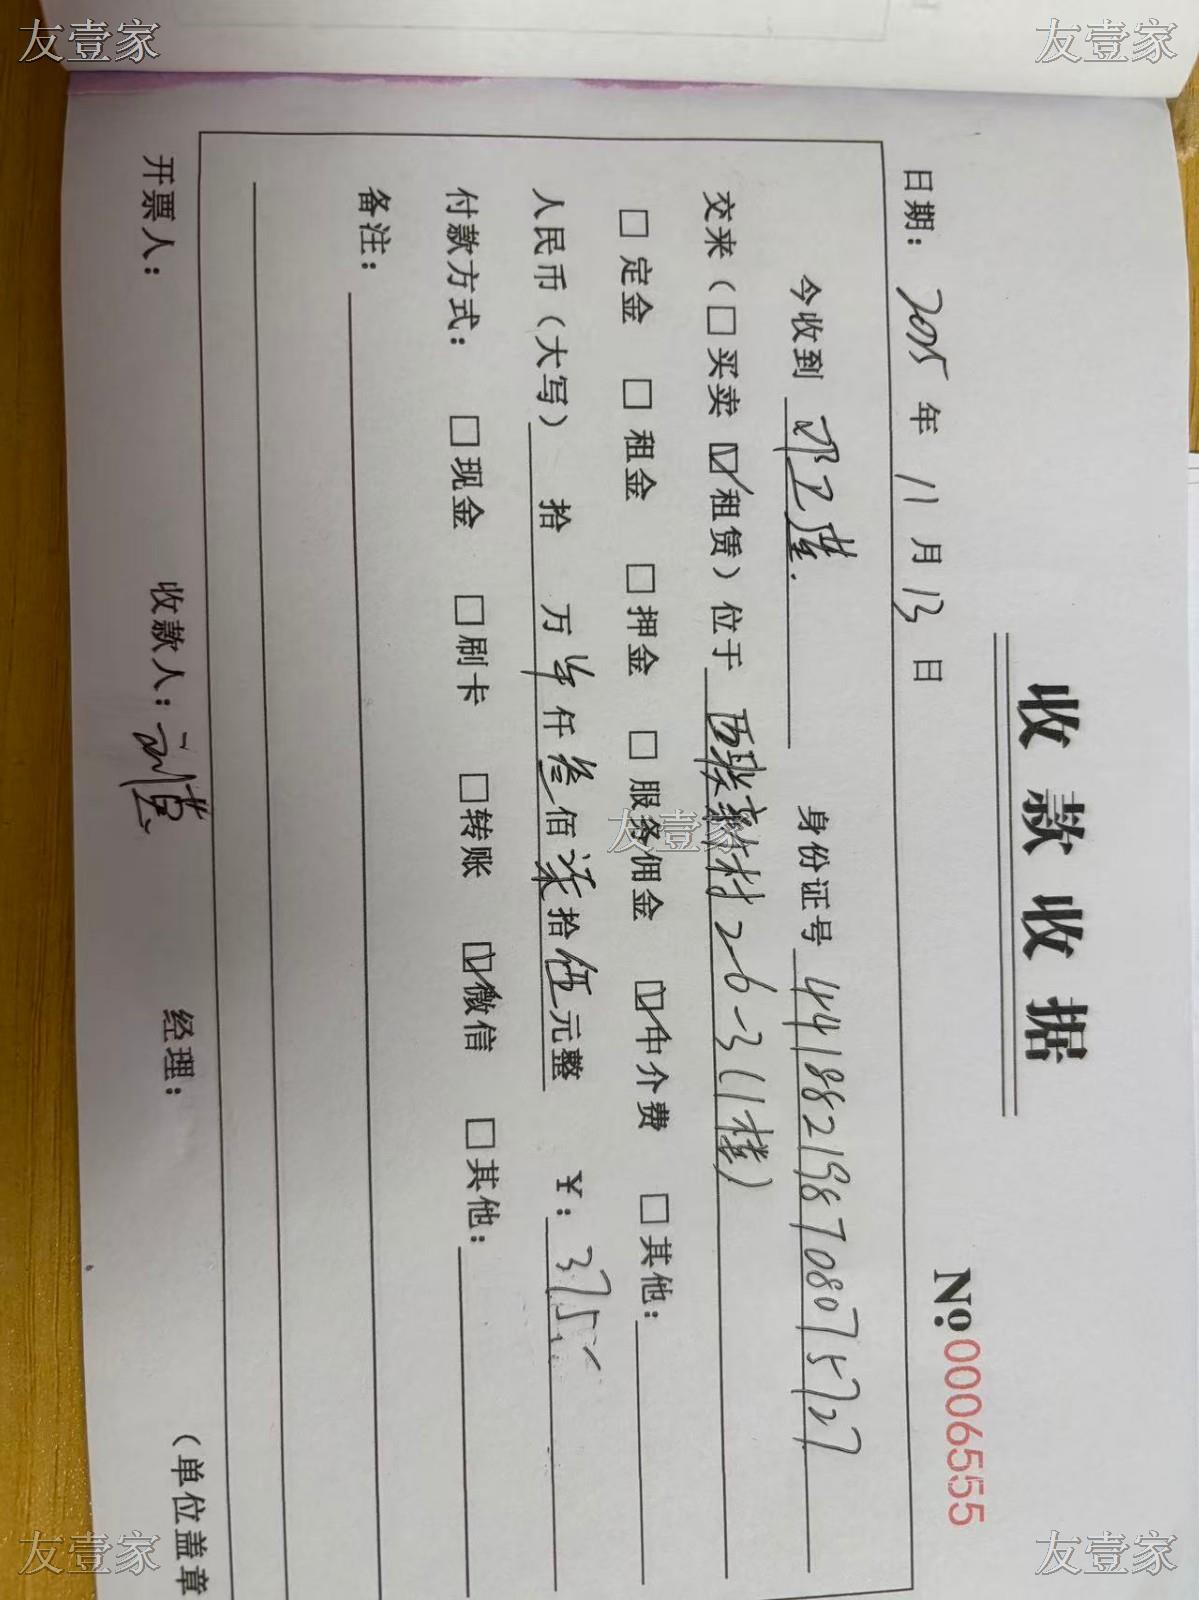 友壹家
友壹家
收款收据
№ 0006555
日期： 2025 年 11 月 13 日
今收到 邓卫莲. 身份证号 441882198708075727
交来（□买卖 ☑租赁）位于 西联新村26-3(1楼)
□ 定金 □ 租金 □ 押金 □ 服务佣金 ☑中介费 □其他：
人民币（大写） 拾 万 仟 叁佰 柒拾 伍元整 ￥：375
付款方式： □现金 □刷卡 □转账 ☑微信 □其他：
备注：
开票人： 收款人： 经理： （单位盖章
友壹家
友壹家
友壹家